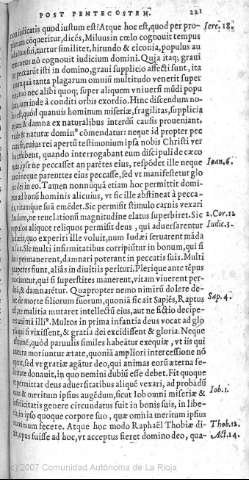 POST PENTECOSTEM. 221
iustificatis quod iustum est? Atque hoc est, quod per pro-
Iere. 18.
tam cōqueritur, dicēs, Miluus in celo cognouit tempus
suū, turtur similiter, hirundo & ciconia, populus au
meus nō cognouit iudicium domini. Quia itaq; graui
peccarūt isti in domino, graui supplicio affecti sunt, ita
quā tanta plagarum omnis multitudo venerit super
nec alibi quoq; super aliquem vniuersi mūdi popu
inde à conditi orbis exordio. Hinc discendum no-
est, quòd quanuis hominum miseriæ, fragilitas, supplicia
damna ex naturalibus interdū causis proueniant,
naturæ dominº cōmendatur: neque id propter pec
cuius rei apertū testimonium ipsa nobis Christi ver
exhibent, quando interrogabant eum discipuli de cæco
Ioan. 6.
ipséne peccasset an parētes eius, respōdet ille neque
neque parentes eius peccasse, sed vt manifestetur glo
dei in eo. Tamen nonnūquā etiam hoc permittit domi-
ad bonū hominis alicuius, vt sic ille abstineat à pecca-
suā emēdet. Sic permisit stimulū carnis vexari
ne reuelationū magnitudine elatus superbiret. Sic
2. Cor. 12
aliquot reliquos permisit deus, qui aduersarentur
Iudic. 3.
quo experiri ille voluit, num Iudæi seruarent māda
Sic multi infirmitatibus corripiūtur in bonum, qui si
permanerent, damnari poterant in peccatis suis. Multi
sunt, aliàs in diuitiis perituri. Plerique ante tēpus
qui si superstites manerent, vitam viuerent per-
& damnarentur. Quapropter nemo nimirū dolere de-
de morte filiorum suorum, quoniā sic ait Sapiēs, Raptus
Sap. 4.
malitia mutaret intellectū eius, aut ne fictio decipe-
illiº. Multos in prima infantia deus vocat ad glo
si vixissent, & gratia dei excidissent & gloria. Neque
quòd paruulis similes habeatur exequiæ, vt iis qui
moriuntur ætate, quoniā ampliori intercessione nō
sed vt gratiæ agātur deo, qui animas eorū æterna fe-
donauit, in quo nemini dubiū esse debet. Fit quoque
permittat deus aduersitatibus aliquē vexari, ad probādū
& meritum ipsius augēdum, sicut Iob omni miseriæ &
Iob. 1.
genere circundatus fuit in bonis suis, in libe-
in ipso quoque corpore suo, quæ omnia meritum ipsius
fecere. Atque hoc modo Raphaël Thobiæ di-
Thob. 12.
fuisse ad hoc, vt acceptus fieret domino deo, qua-
Act. 14.
2007 Comunidad Autónoma de La Rioja